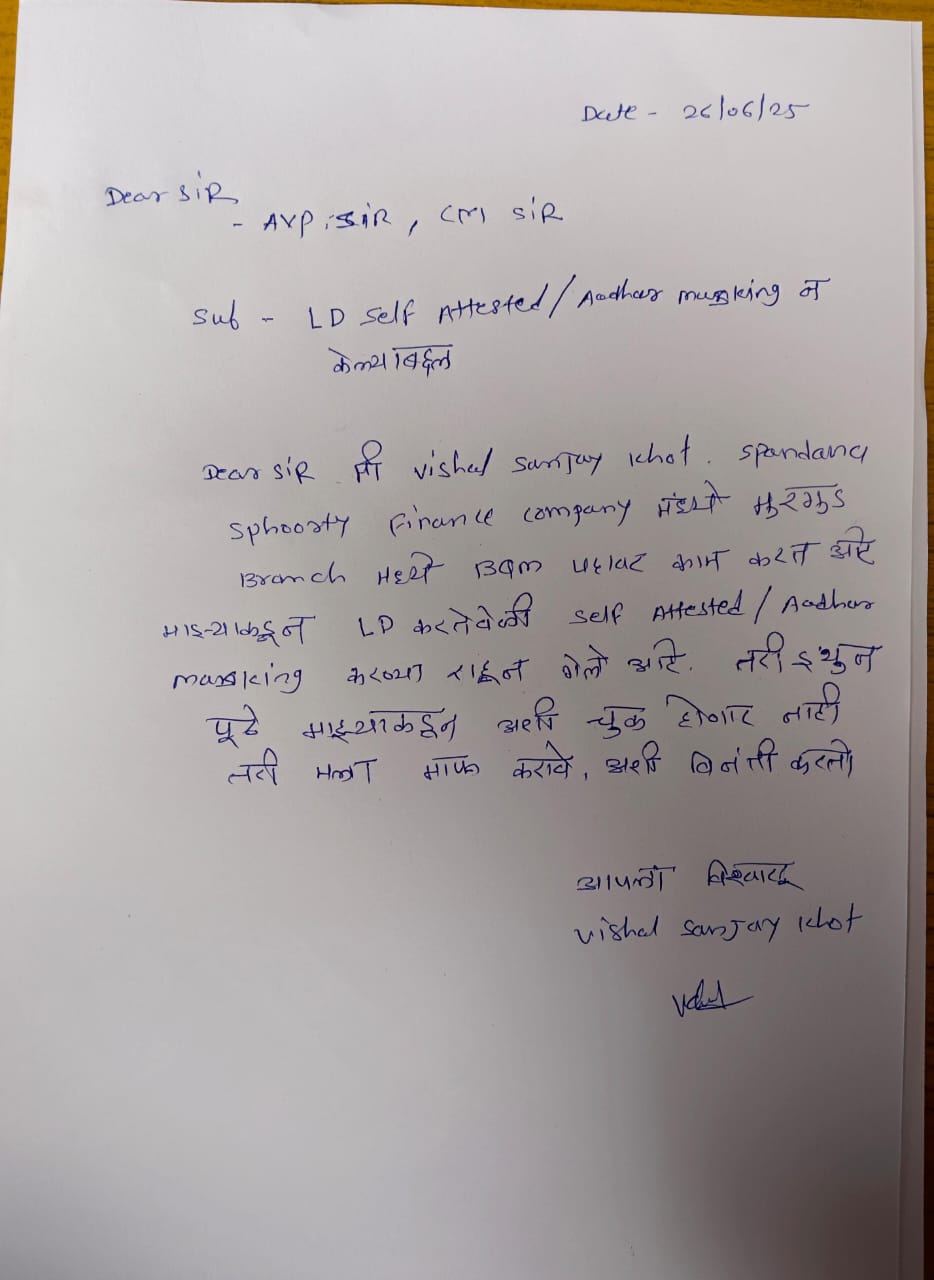 Date - 26/06/25
Dear SIR
- AVP SIR, CM SIR
Sub - LD Self Attested/Aadhar masking न
केल्याबद्दल
Dear SIR मी Vishal Sanjay Khot. Spandana
Sphoorty Finance Company मध्ये मुरगूड
Branch मध्ये BQM पदावर काम करत आहे
माझ्याकडून LD करतेवेळी Self Attested/Aadhar
masking करण्या राहून गेले आहे. तरी इथुन
पूढे माझ्याकडून अशी चुक होणार नाही
तरी मला माफ करावे, अशी विनंती करतो
आपला विश्वासू
Vishal Sanjay Khot